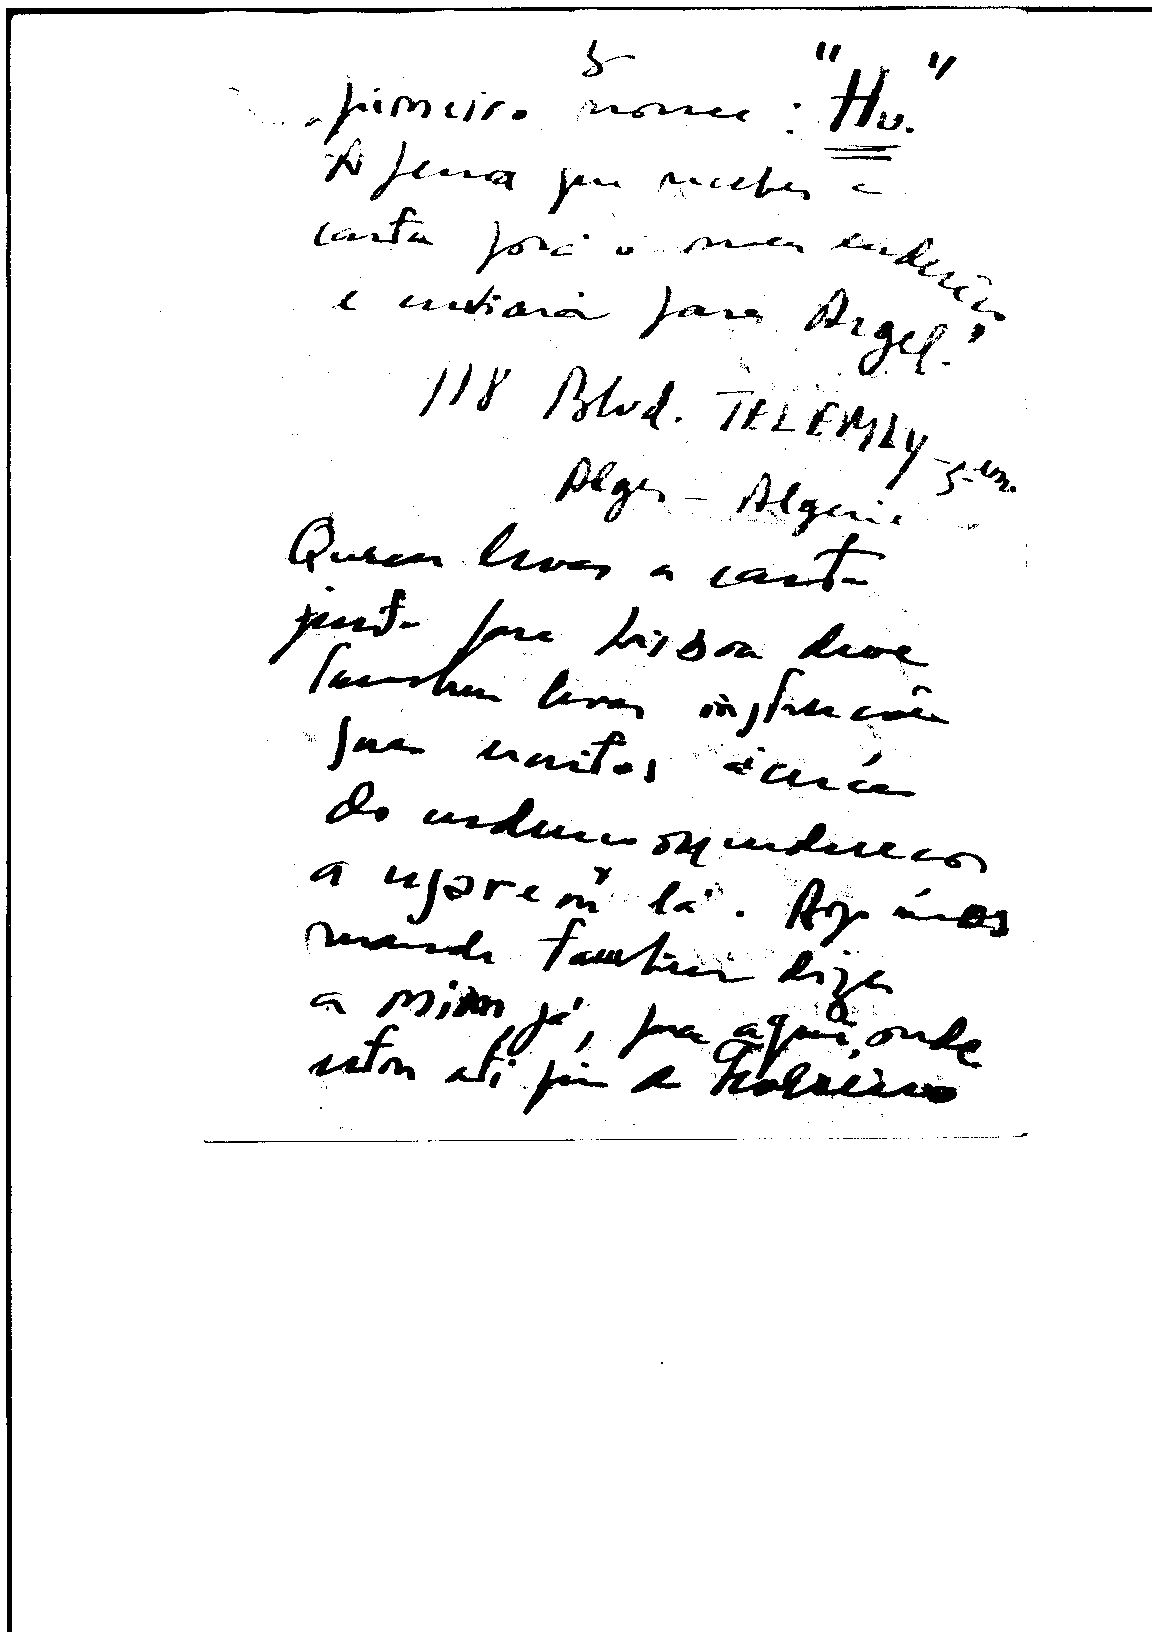 5
primeiro nome : "Hu."
A pessoa que receber a
carta porá o meu endereço
e enviará para Argel."
118 Blvd. TELEMLY - 5-
Alger - Algerie
Quem levar a carta
junta para Lisboa deve
também levar
para
do endereço ou endereços
a lá.
mande também dizer
a mim já, para aqui, onde
estou até fim de Fevereiro